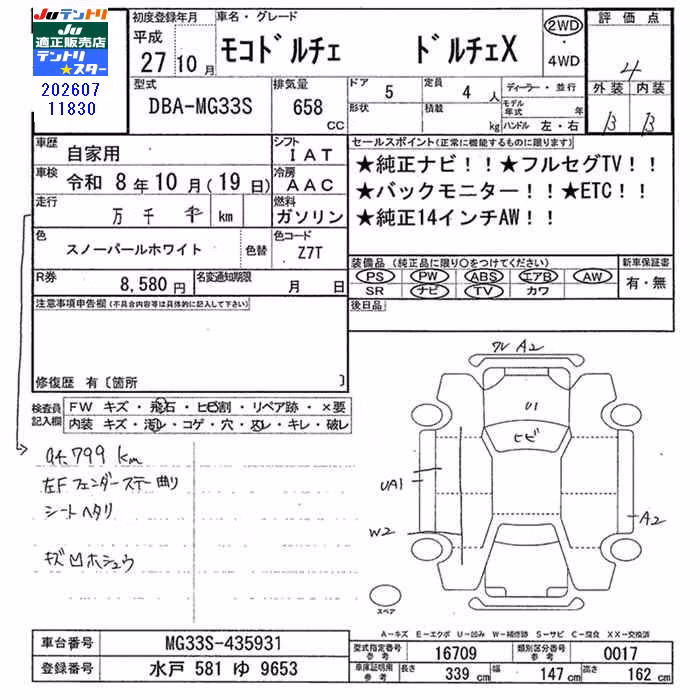 Juテントリ
Ju
適正販売店
テントリ
★スター
202607
11830
初度登録年月
平成
27 10 月
車名・グレード
モコドルチェ ドルチェX
2WD
・
4WD
評価点
4
外装 内装
B B
型式
DBA-MG33S
排気量
658
CC
ドア
5
定員
4 人
形状
積載
kg
ディーラー・並行
モデル年式 年
ハンドル 左・右
車歴
自家用
シフト
IAT
車検
令和 8年10月(19日)
冷房
AAC
走行
万 千 km
燃料
ガソリン
色
スノーパールホワイト
色替
色コード
Z7T
R券
8,580 円
名変通知期限
月 日
セールスポイント(正常に機能するものに限ります)
★純正ナビ!!★フルセグTV!!
★バックモニター!!★ETC!!
★純正14インチAW!!
装備品(純正品に限り○をつけてください)
PS PW ABS エアB AW
SR ナビ TV カワ
新車保証書
有・無
後日品
注意事項申告欄(不具合内容等は具体的に記入して下さい)
修復歴 有〔箇所 〕
検査員
記入欄
FW キズ・飛石・ヒビ割・リペア跡・×要
内装 キズ・汚レ・コゲ・穴・スレ・キレ・破レ
94,799 km
左Fフェンダーステー曲り
シートヘタリ
キズ凹ホシュウ
ワレ A2
U1
ヒビ
UA1
W2
A2
スペア
A－キズ E－エクボ U－凹み W－補修跡 S－サビ C－腐食 XX－交換済
車台番号
MG33S-435931
登録番号
水戸 581 ゆ 9653
型式指定番号
参考
16709
類別区分番号
参考
0017
車庫証明用
参考
長さ
339 cm
幅
147 cm
高さ
162 cm